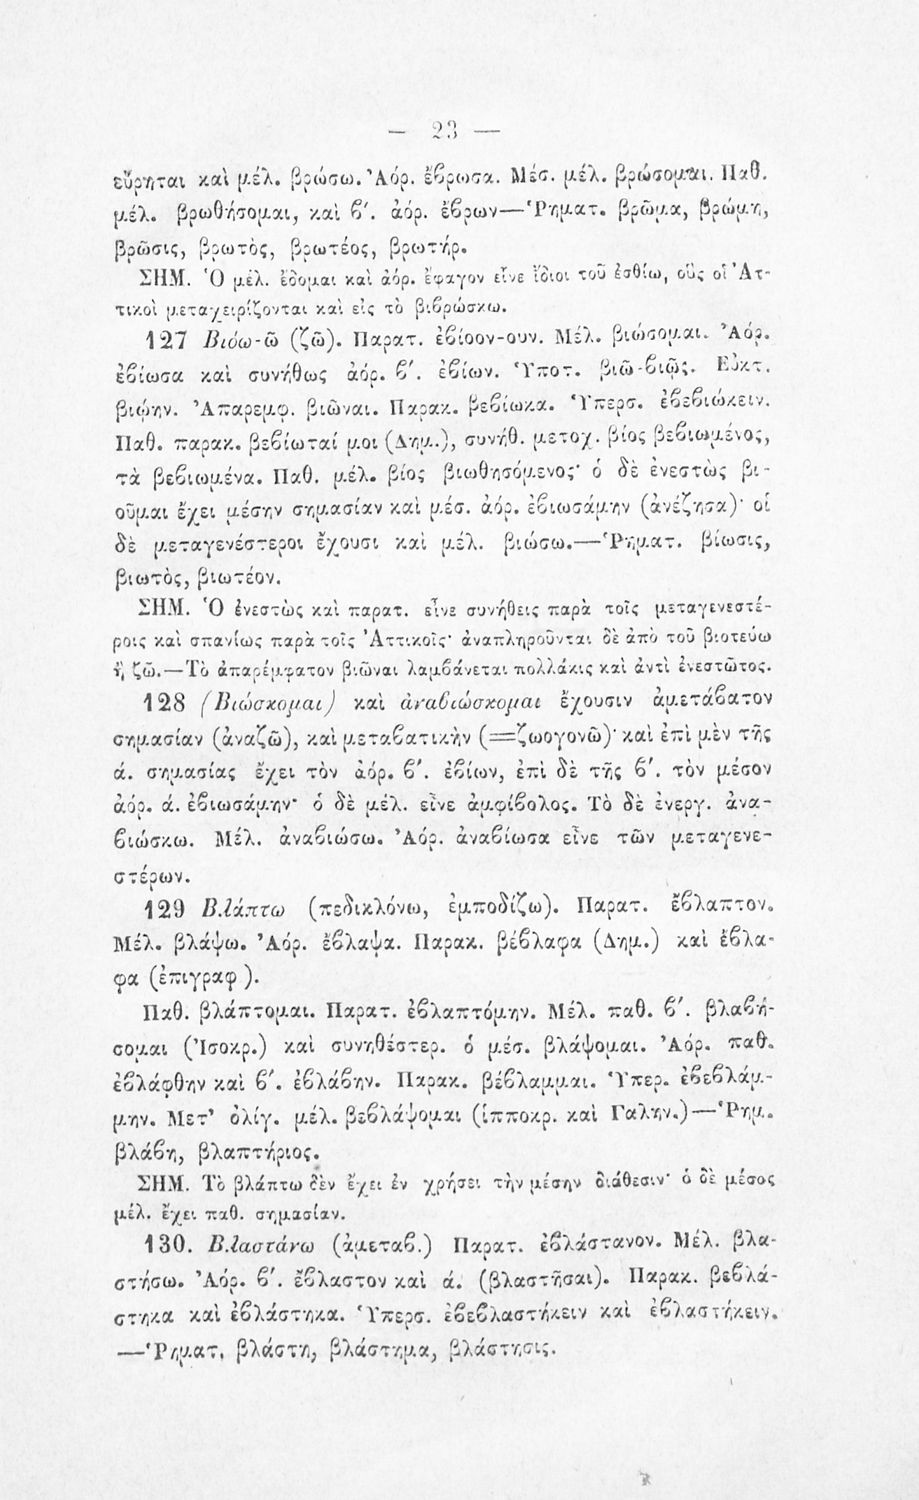 — 23 —
εὕρηται καὶ μέλ. βρώσω. Ἀόρ. ἔβρωσα. Μέσ. μέλ. βρώσομαι. Παθ.
μέλ. βρωθήσομαι, καὶ β'. ἀόρ. ἔβρων—Ῥηματ. βρῶμα, βρώμη,
βρῶσις, βρωτὸς, βρωτέος, βρωτήρ.
ΣΗΜ. Ὁ μέλ. ἔδομαι καὶ ἀόρ. ἔφαγον εἶνε ἴδιοι τοῦ ἐσθίω, οὓς οἱ Ἀτ-
τικοὶ μεταχειρίζονται καὶ εἰς τὸ βιβρώσκω.
127 Βιόω-ῶ (ζῶ). Παρατ. ἐβίοον-ουν. Μέλ. βιώσομαι. Ἀόρ.
ἐβίωσα καὶ συνήθως ἀόρ. β'. ἐβίων. Ὑποτ. βιῶ-βιῷς. Εὐκτ.
βιῴην. Ἀπαρεμφ. βιῶναι. Παρακ. βεβίωκα. Ὑπερσ. ἐβεβιώκειν.
Παθ. παρακ. βεβίωταί μοι (Δημ.), συνήθ. μετοχ. βίος βεβιωμένος,
τὰ βεβιωμένα. Παθ. μέλ. βίος βιωθησόμενος· ὁ δὲ ἐνεστὼς βι-
οῦμαι ἔχει μέσην σημασίαν καὶ μέσ. ἀόρ. ἐβιωσάμην (ἀνέζησα)· οἱ
δὲ μεταγενέστεροι ἔχουσι καὶ μέλ. βιώσω.—Ῥηματ. βίωσις,
βιωτὸς, βιωτέον.
ΣΗΜ. Ὁ ἐνεστὼς καὶ παρατ. εἶνε συνήθεις παρὰ τοῖς μεταγενεστέ-
ροις καὶ σπανίως παρὰ τοῖς Ἀττικοῖς· ἀναπληροῦνται δὲ ἀπὸ τοῦ βιοτεύω
ἢ ζῶ.—Τὸ ἀπαρέμφατον βιῶναι λαμβάνεται πολλάκις καὶ ἀντὶ ἐνεστῶτος.
128 (Βιώσκομαι) καὶ ἀναβιώσκομαι ἔχουσιν ἀμετάβατον
σημασίαν (ἀναζῶ), καὶ μεταβατικὴν (=ζωογονῶ)· καὶ ἐπὶ μὲν τῆς
ά. σημασίας ἔχει τὸν ἀόρ. β'. ἐβίων, ἐπὶ δὲ τῆς β'. τὸν μέσον
ἀόρ. ά. ἐβιωσάμην· ὁ δὲ μέλ. εἶνε ἀμφίβολος. Τὸ δὲ ἐνεργ. ἀνα-
βιώσκω. Μέλ. ἀναβιώσω. Ἀόρ. ἀναβίωσα εἶνε τῶν μεταγενε-
στέρων.
129 Βλάπτω (πεδικλόνω, ἐμποδίζω). Παρατ. ἔβλαπτον.
Μέλ. βλάψω. Ἀόρ. ἔβλαψα. Παρακ. βέβλαφα (Δημ.) καὶ ἔβλα-
φα (ἐπιγραφ ).
Παθ. βλάπτομαι. Παρατ. ἐβλαπτόμην. Μέλ. παθ. β'. βλαβή-
σομαι (Ἰσοκρ.) καὶ συνηθέστερ. ὁ μέσ. βλάψομαι. Ἀόρ. παθ.
ἐβλάφθην καὶ β'. ἐβλάβην. Παρακ. βέβλαμμαι. Ὑπερ. ἐβεβλάμ-
μην. Μετ' ὀλίγ. μέλ. βεβλάψομαι (ἱπποκρ. καὶ Γαλην.)—Ῥημ.
βλάβη, βλαπτήριος.
ΣΗΜ. Τὸ βλάπτω δὲν ἔχει ἐν χρήσει τὴν μέσην διάθεσιν· ὁ δὲ μέσος
μέλ. ἔχει παθ. σημασίαν.
130. Βλαστάνω (ἀμεταβ.) Παρατ. ἐβλάστανον. Μέλ. βλα-
στήσω. Ἀόρ. β'. ἔβλαστον καὶ ά. (βλαστῆσαι). Παρακ. βεβλά-
στηκα καὶ ἐβλάστηκα. Ὑπερσ. ἐβεβλαστήκειν καὶ ἐβλαστήκειν.
—Ῥηματ. βλάστη, βλάστημα, βλάστησις.